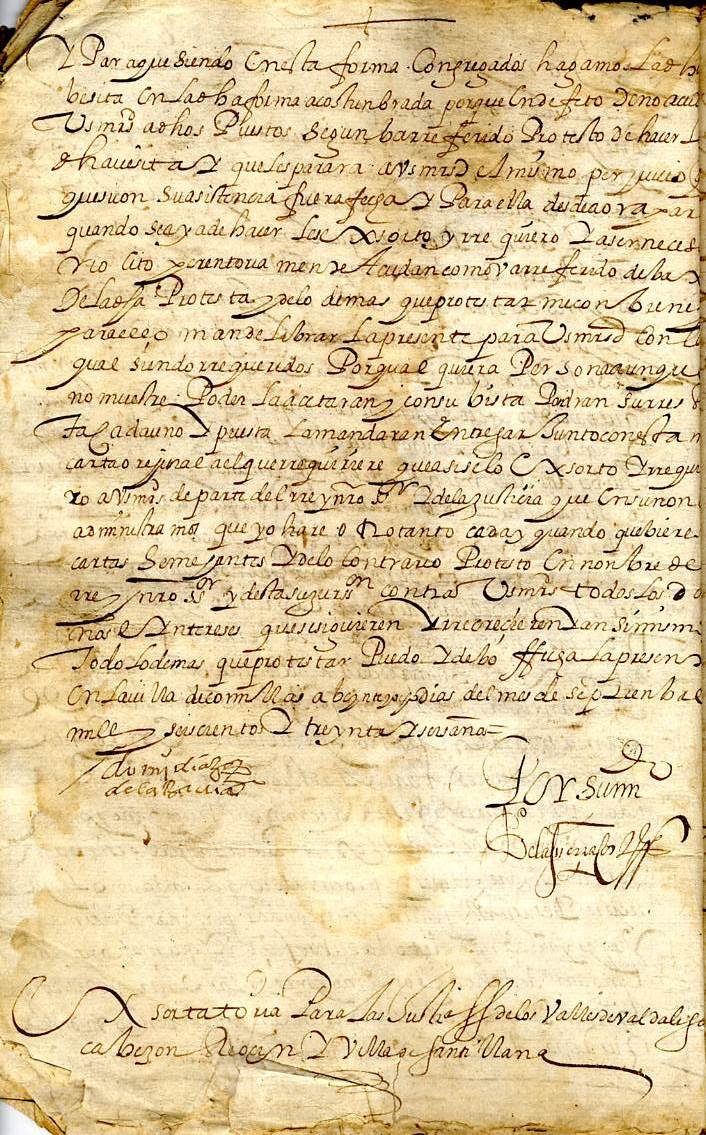 Y Para que siendo En esta forma Congregados hagamos La dha
besita En La dha forma acostunbrada porque En defeto de no acudir
Vsmrs a dhos Puestos Segun ba rreferido Protesto de hacer La
dha vesita Y que les parara a Vsmrds el mismo perjuicio
que si con su asistencia fuera fecha Y Para ella desde aora para
quando sea y a de hacerse les Exsorto y rrequiero Y a ser necesa
rio Cito perentoriamente Acudan como va rreferido debaxo
De La dha Protesta y de lo demas que protestar me conbiene
para ello mande Librar La presente para Vsmrds Con La
qual siendo rrequeridos Por qual quiera Persona aunque
no muestre Poder La acetaran y con su bista Pondran su rrespues
ta Cada uno Y puesta La mandaran Entregar Junto con esta mi
carta orejinal a el que rrequiriere que asi se lo Exsorto Y rrequie
ro a Vsmrs de parte del rrey nro sr Y de la justicia que En su nonbre
administramos que yo hare otro tanto cada y quando que biere
cartas Semejantes Y de lo contrario Protesto En nonbre del
rrey nro sr y desta su juron contra Vsmrs todos Los da
ños E Intereses que se siguieren Y rrecrecieren Y ansimismo
Todo Lo demas que protestar Puedo Y debo ffecha La presente
En La villa de comillas a beynte y dias del mes de septienbre
mill y seiscientos Y treynta Y seis años
domi diaz
de la
Por Su mdo
Exsortatoria Para Las Justias de los Valles de Valdaliga
cabezon Reocin Y Villa de santillana